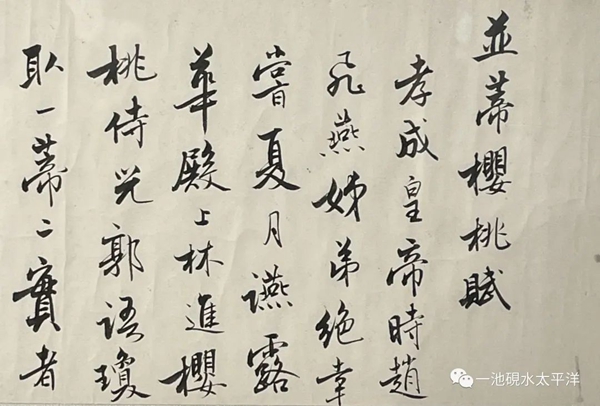 並蒂櫻桃賦
孝成皇帝時趙
飛燕姊弟絕幸
嘗夏月讌露
華殿上林進櫻
桃侍兒郭語瓊
取一蒂二實者
一池硯水太平洋